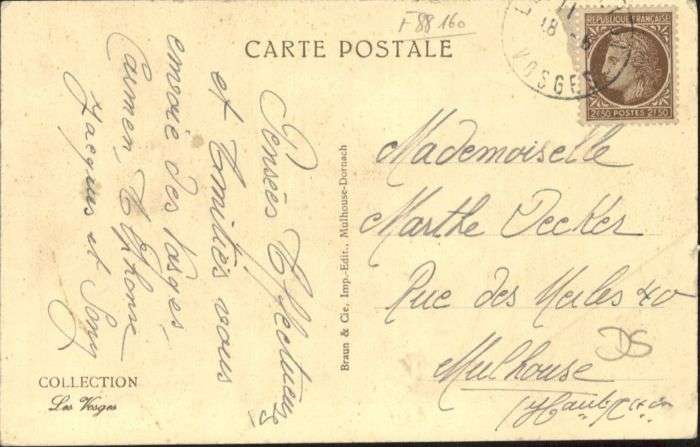 F 88 160
CARTE POSTALE
VOSGES
18
REPUBLIQUE FRANÇAISE
2F50 POSTES 2F50
Pensées Affectueuses
et Amitiés vous
envoie des Vosges.
Carmen, Alphonse
Jacques et Sony
Braun & Cie, Imp.-Edit., Mulhouse-Dornach
Mademoiselle
Marthe Decker
Rue des Merles 40
Mulhouse
(Haut-Rhin
DS
COLLECTION
Les Vosges